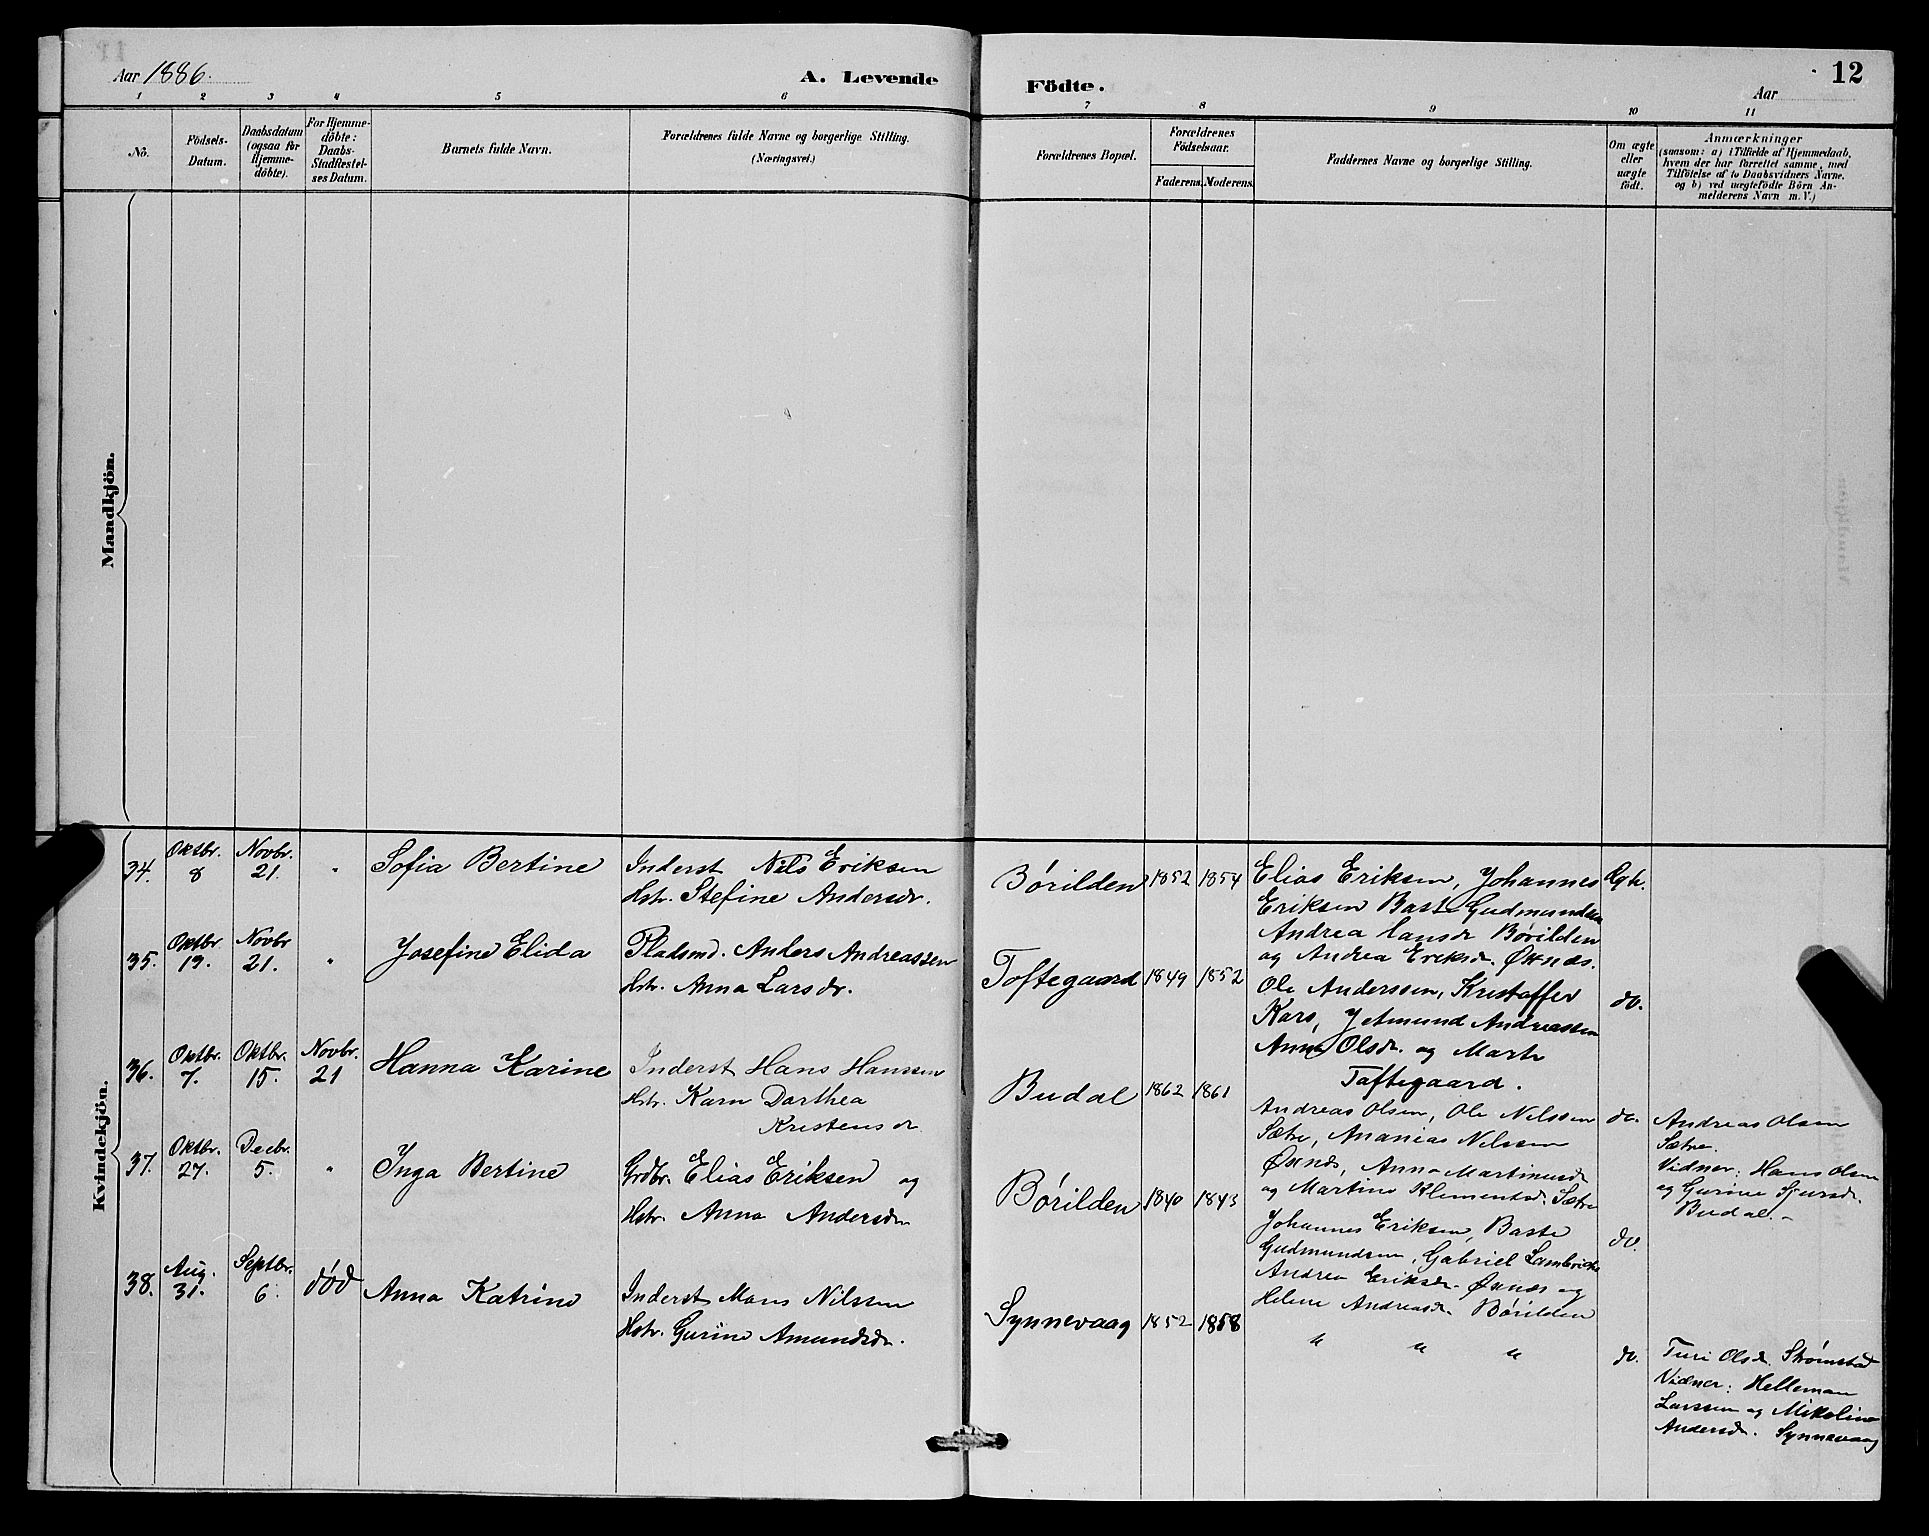 Aar 1886.
A. Levende
Födte.
12
Aar
1 2 3 4 5 6 7 8 9 10 11
No.
Födsels-
Datum.
Daabsdatum
(ogsaa for
Hjemme-
döbte).
For Hjemme-
döbte:
Daabs-
Stadfestel-
ses Datum.
Barnets fulde Navn.
Forældrenes fulde Navne og borgerlige Stilling.
(Næringsvei.)
Forældrenes Bopæl.
Forældrenes
Födselsaar.
Faderens.
Moderens.
Faddernes Navne og borgerlige Stilling.
Om ægte
eller
uægte
födt.
Anmærkninger
(saasom: a) i Tilfælde af Hjemmedaab,
hvem der har forrettet samme, med
Tilföielse af to Daabsvidners Navne,
og b) ved uægtefödte Börn An-
melderens Navn m. V.)
Mandkjön.
Kvindekjön.
34.
Oktbr.
8
Novbr.
21.
"
Sofia Bertine
Inderst Nils Eriksen
Hstr. Stefine Andersdr.
Börilden
1852
1854
Elias Eriksen, Johannes
Eriksen Baste Gudmundsen
Andrea Hansdr Börilden
og Andrea Eriksdr. Öxnæs.
35.
Oktbr.
19.
Novbr
21.
"
Josefine Elida
Pladsmd. Anders Andreassen
Hstr. Anna Larsdr.
Toftegaard
1849
1852
Ole Anderssen, Kristoffer
Kars, Jetmund Andreassen
Anna Olsdr. og Marte
Toftegaard.
do.
36.
Oktbr.
7.
Oktbr.
15.
Novbr.
21
Hanna Karine
Inderst Hans Hanssen
Hstr. Karn Dorthea
Kristensdr
Budal
1862
1861
Andreas Olsen, Ole Nilssen
Sætre, Ananias Nilssen
Öxnæs, Anna Martinusdr
og Martine Klementsdr. Sætre
do.
Andreas Olsen
Sætre.
Vidner: Hans Olsen
og Gurine Sjursdr.
Budal.-
37.
Oktbr.
27.
Decbr.
5.
"
Inga Bertine
Grdbr. Elias Eriksen og
Hstr. Anna Andersdr
Börilden
1840
1843
Johannes Eriksen, Baste
Gudmundsen, Gabriel
Andrea Eriksdr. Öxnæs og
Helene Andreasdr. Börilden
do.
38.
Aug.
31.
Septbr.
6.
död
Anna Katrine
Inderst Mons Nilssen
Hstr. Gurine Amundsdr.
Synnevaag
1852
1858
" " "
do.
Turi Olsdr. Strömstad
Vidner: Helleman
Larssen og Mikoline
Andersdr. Synnevaag